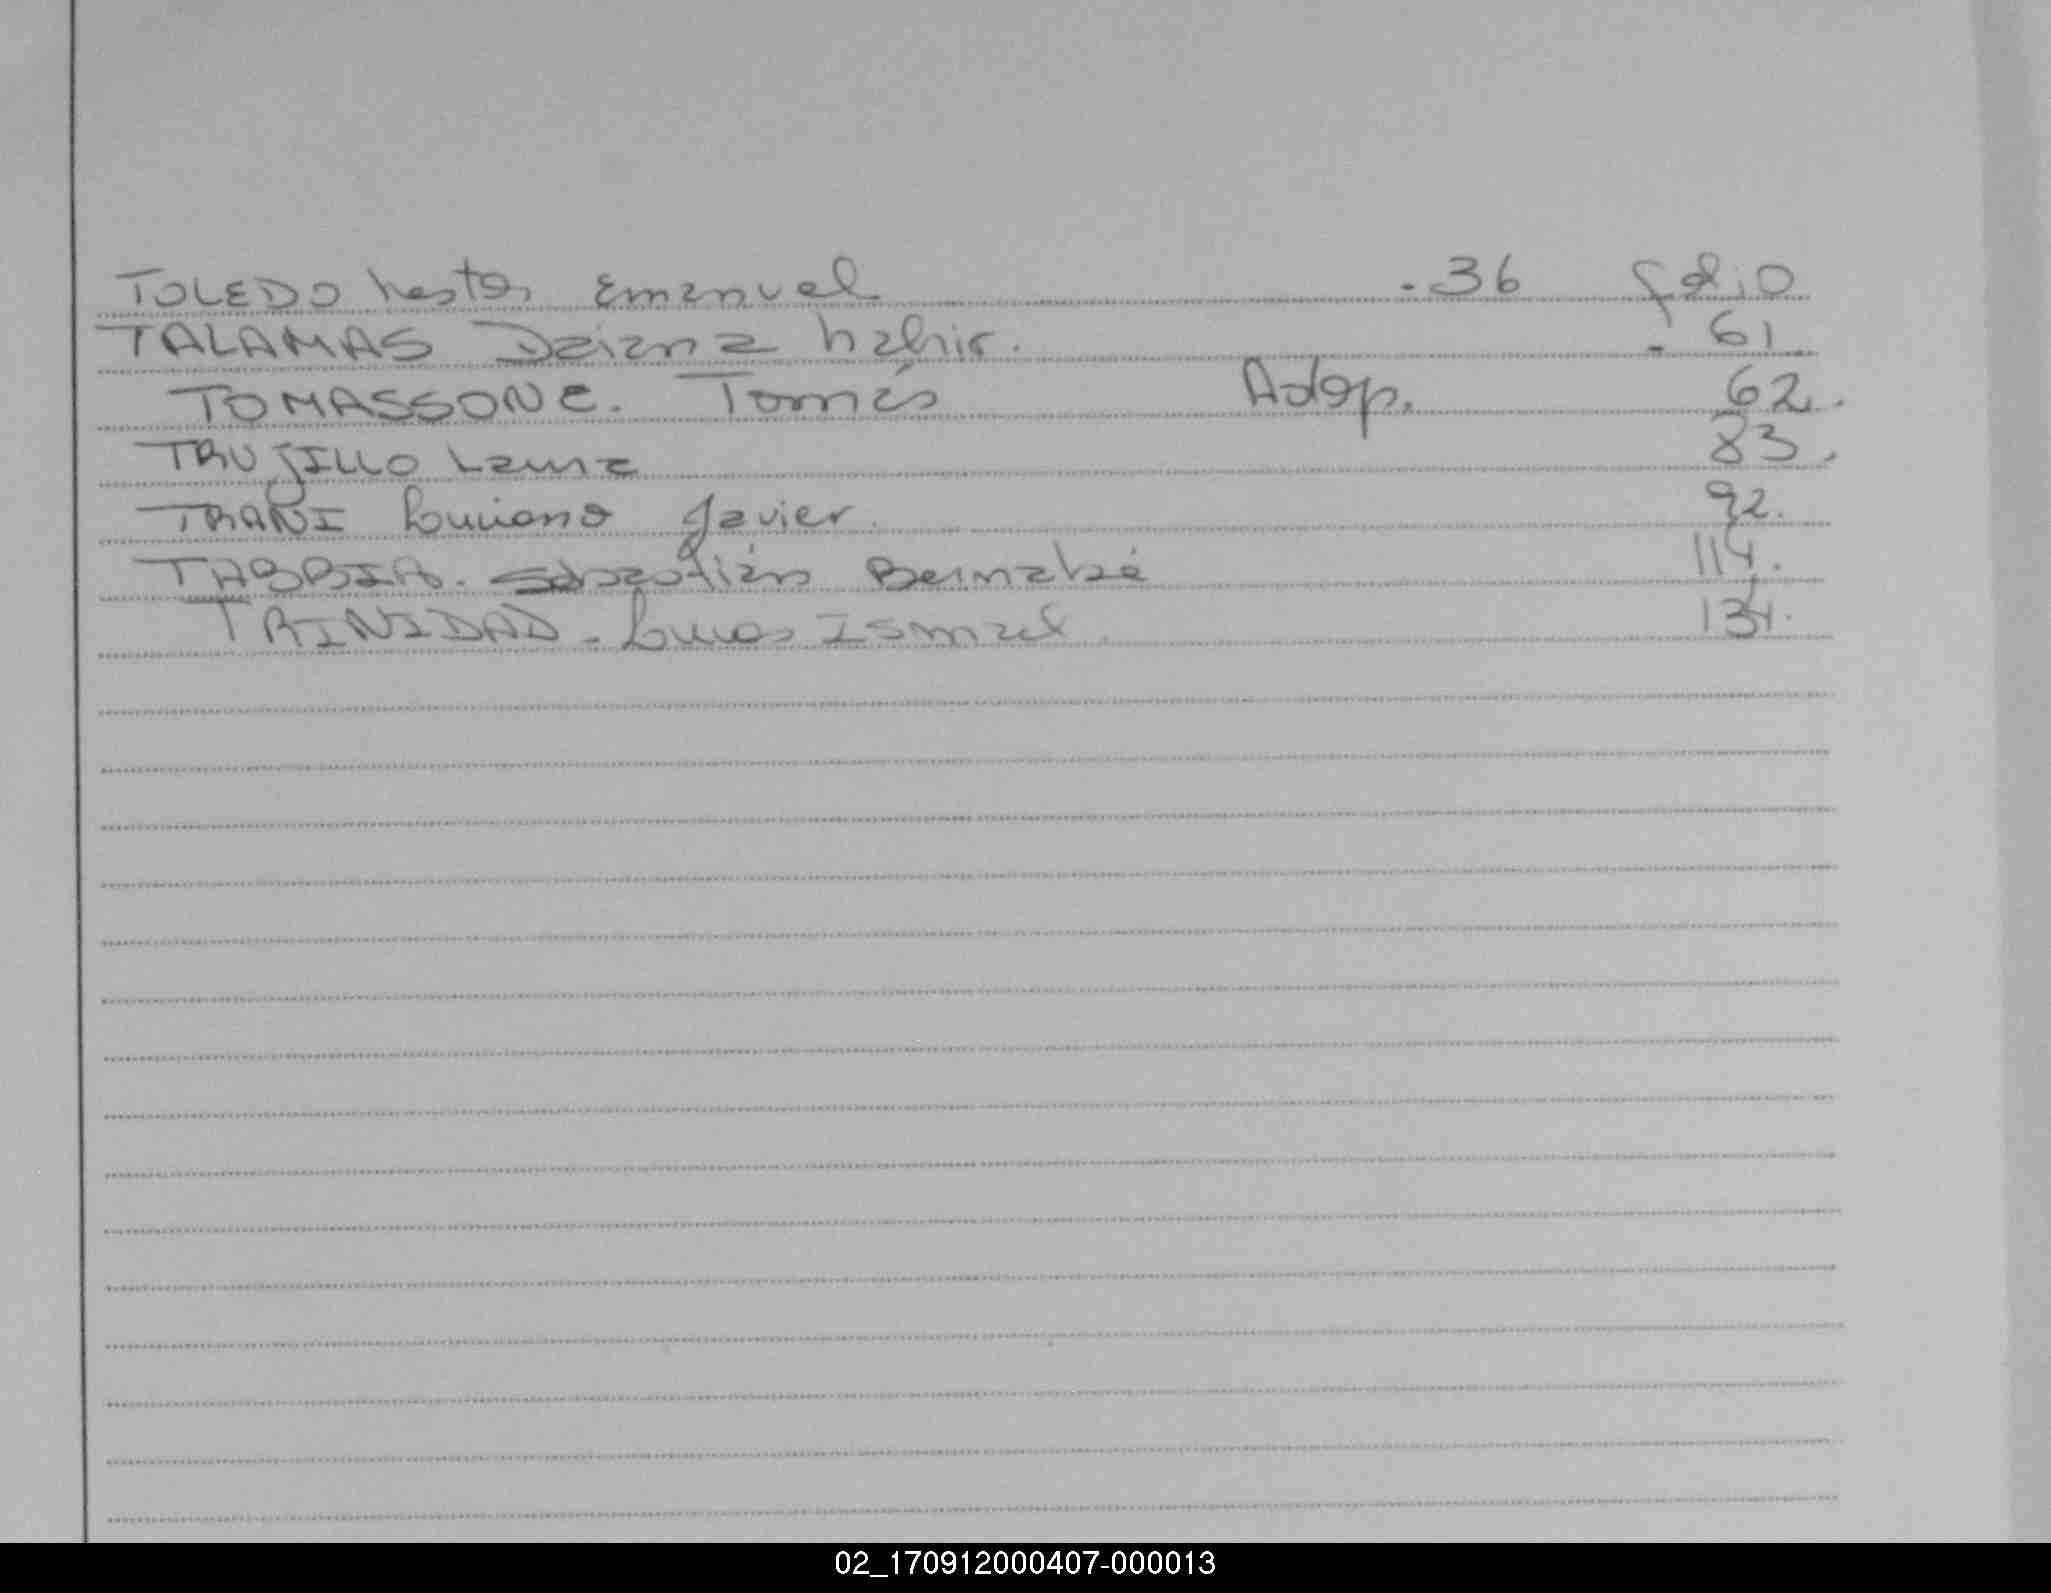 TOLEDO Nestor Emanuel .36 folio
TALAMAS Daiana Nahir. - 61
TOMASSONE. Tomás Adop. 62.
TRUJILLO Laura 83.
TRANI Luciano Javier. 92.
TABBIA. Sebastián Bernabé 114.
TRINIDAD - Lucas Ismael. 134.
02_170912000407-000013